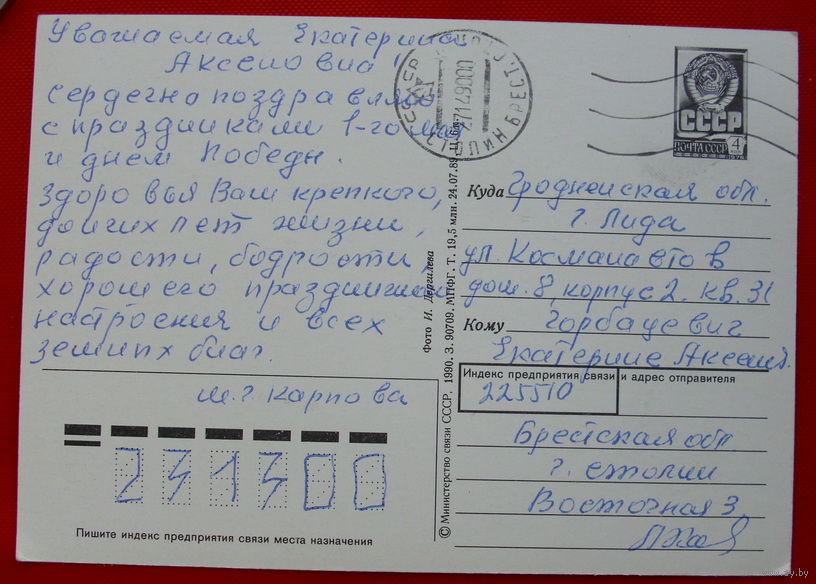 Уважаемая Екатерина
Аксеновна!
Сердечно поздравляю
с праздниками 1-го мая
и днем Победы.
Здоровья Вам крепкого,
долгих лет жизни,
радости, бодрости,
хорошего праздничного
настроения и всех
земных благ.
Карпова
231300
Пишите индекс предприятия связи места назначения
Фото И. Дергилева
© Министерство связи СССР. 1990. З. 90709. МПФГ. Т. 19,5 млн. 24.07.89. Ц. 6 к.
СССР
ПОЧТА СССР 4
Куда Гродненская обл.
г. Лида
ул. Космонавтов
дом. 8, корпус 2. кв. 31
Кому Горбацевич
Екатерине Аксен.
Индекс предприятия связи и адрес отправителя
225510
Брестская обл
г. Столин
Восточная 3